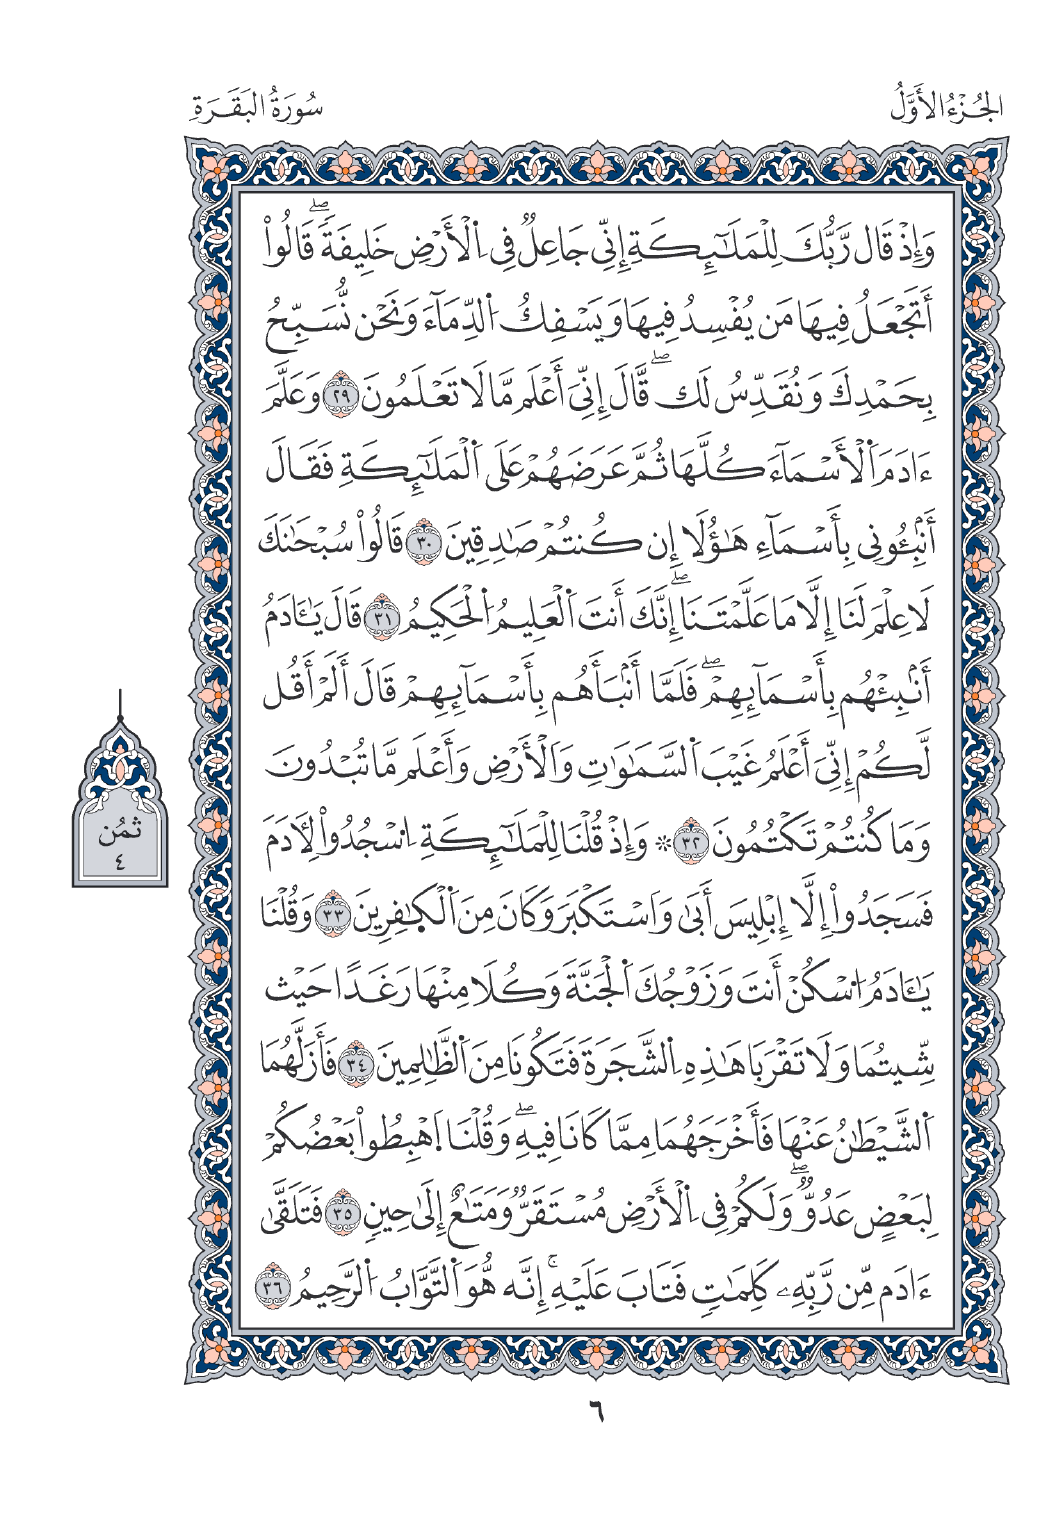 الجُزْءُ الأَوَّلُ
سُورَةُ البَقَرَةِ
وَإِذْ قَال رَّبُّكَ لِلْمَلَٰٓئِكَةِ إِنِّي جَاعِلٌ فِي اِ۬لْأَرْضِ خَلِيفَةٗۖ قَالُواْ
أَتَجْعَلُ فِيهَا مَن يُفْسِدُ فِيهَا وَيَسْفِكُ اُ۬لدِّمَآءَ وَنَحْن نُّسَبِّحُ
بِحَمْدِكَ وَنُقَدِّسُ لَكۖ قَّالَ إِنِّيَ أَعْلَم مَّا لَا تَعْلَمُونَ ٢٩ وَعَلَّمَ
ءَادَمَ اَ۬لْأَسْمَآءَ كُلَّهَا ثُمَّ عَرَضَهُمْ عَلَى اَ۬لْمَلَٰٓئِكَةِ فَقَالَ
أَنۢبِـُٔونِي بِأَسْمَآءِ هَٰؤُلَا إِن كُنتُمْ صَٰدِقِينَ ٣٠ قَالُواْ سُبْحَٰنَكَ
لَا عِلْمَ لَنَا إِلَّا مَا عَلَّمْتَنَاۖ إِنَّكَ أَنتَ اَ۬لْعَلِيمُ اُ۬لْحَكِيمُ ٣١ قَالَ يَٰـَٔادَمُ
أَنۢبِئْهُم بِأَسْمَآئِهِمْۖ فَلَمَّا أَنۢبَأَهُم بِأَسْمَآئِهِمْ قَالَ أَلَمْ أَقُل
لَّكُمْ إِنِّيَ أَعْلَمُ غَيْبَ اَ۬لسَّمَٰوَٰتِ وَالْأَرْضِ وَأَعْلَم مَّا تُبْدُونَ
وَمَا كُنتُمْ تَكْتُمُونَ ٣٢ ۞ وَإِذْ قُلْنَا لِلْمَلَٰٓئِكَةِ اِ۟سْجُدُواْ لِأٓدَمَ
فَسَجَدُواْ إِلَّا إِبْلِيسَ أَبَىٰ وَاَسْتَكْبَرَ وَكَانَ مِنَ اَ۬لْكٰ۪فِرِينَ ٣٣ وَقُلْنَا
يَٰـَٔادَمُ اُ۟سْكُنْ أَنتَ وَزَوْجُكَ اَ۬لْجَنَّةَ وَكُلَا مِنْهَا رَغَدًا حَيْث
شِّيتُمَا وَلَا تَقْرَبَا هَٰذِهِ اِ۬لشَّجَرَةَ فَتَكُونَا مِنَ اَ۬لظَّٰلِمِينَ ٣٤ فَأَزَلَّهُمَا
اَ۬لشَّيْطَٰنُ عَنْهَا فَأَخْرَجَهُمَا مِمَّا كَانَا فِيهِۖ وَقُلْنَا اَ۪هْبِطُواْ بَعْضُكُمْ
لِبَعْضٍ عَدُوّٞۖ وَلَكُمْ فِي اِ۬لْأَرْضِ مُسْتَقَرّٞ وَمَتَٰعٌ إِلَىٰ حِينٖ ٣٥ فَتَلَقَّىٰ
ءَادَم مِّن رَّبِّهِۦ كَلِمَٰتٖ فَتَابَ عَلَيْهِۚ إِنَّه هُّوَ اَ۬لتَّوَّابُ اُ۬لرَّحِيمُ ٣٦
ثمُن
٤
٦